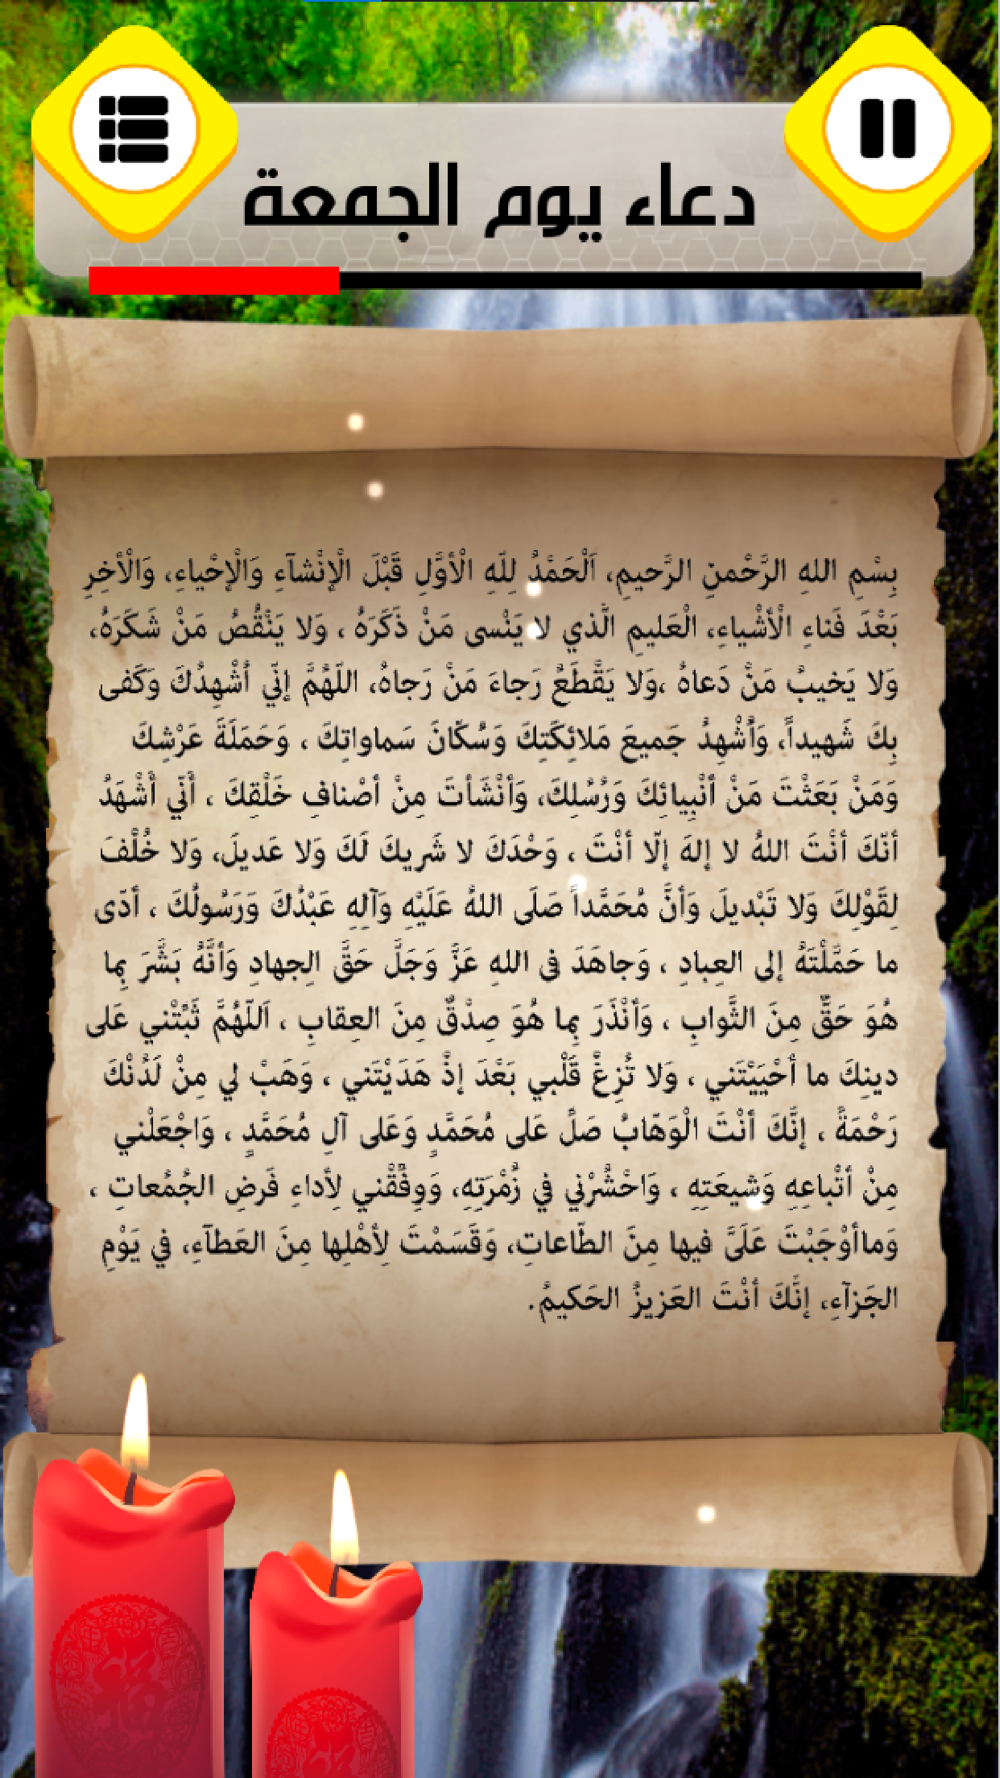 دعاء يوم الجمعة
بِسْمِ اللهِ الرَّحْمنِ الرَّحيمِ، اَلْحَمْدُ لِلّهِ الْأوَّلِ قَبْلَ الْإنْشآءِ وَالْإحْياءِ، وَالْأخِرِ
بَعْدَ فَناءِ الْأشْياءِ، الْعَليمِ الَّذي لا يَنْسى مَنْ ذَكَرَهُ ، وَلا يَنْقُصُ مَنْ شَكَرَهُ،
وَلا يَخيبُ مَنْ دَعاهُ ،وَلا يَقْطَعُ رَجاءَ مَنْ رَجاهُ، اللّهُمَّ إنّي اُشْهِدُكَ وَكَفى
بِكَ شَهيداً، وَاُشْهِدُ جَميعَ مَلائِكَتِكَ وَسُكّانَ سَماواتِكَ ، وَحَمَلَةَ عَرْشِكَ
وَمَنْ بَعَثْتَ مَنْ أنْبِيائِكَ وَرُسُلِكَ، وَأنْشَأتَ مِنْ أصْنافِ خَلْقِكَ ، أنّي أشْهَدُ
أنّكَ أنْتَ اللهُ لا إلهَ إلّا أنْتَ ، وَحْدَكَ لا شَرِيكَ لَكَ وَلا عَديلَ، وَلا خُلْفَ
لِقَوْلِكَ وَلا تَبْديلَ وَأنَّ مُحَمَّداً صَلَى اللهُ عَلَيْهِ وَآلِهِ عَبْدُكَ وَرَسُولُكَ ، أدّى
ما حَمَّلْتَهُ إلى العِبادِ ، وَجاهَدَ فى اللهِ عَزَّ وَجَلَّ حَقَّ الِجهادِ وَأنَّهُ بَشَّرَ بِما
هُوَ حَقٌّ مِنَ الثَّوابِ ، وَأنْذَرَ بِما هُوَ صِدْقٌ مِنَ العِقابِ ، اَللّهُمَّ ثَبِّتْني عَلى
دينِكَ ما أحْيَيْتَني ، وَلا تُزِغْ قَلْبي بَعْدَ إذْ هَدَيْتَني ، وَهَبْ لي مِنْ لَدُنْكَ
رَحْمَةً ، إنَّكَ أنْتَ الْوَهّابُ صَلِّ عَلى مُحَمَّدٍ وَعَلى آلِ مُحَمَّدٍ ، وَاجْعَلْني
مِنْ أتْباعِهِ وَشيعَتِهِ ، وَاحْشُرْني في زُمْرَتِهِ، وَوِفِّقْني لِأداءِ فَرضِ الجُمُعاتِ ،
وَماأوْجَبْتَ عَلَىَّ فيها مِنَ الطّاعاتِ، وَقَسَمْتَ لِأهْلِها مِنَ العَطآءِ، في يَوْمِ
الجَزآءِ، إنَّكَ أنْتَ العَزيزُ الحَكيمُ.